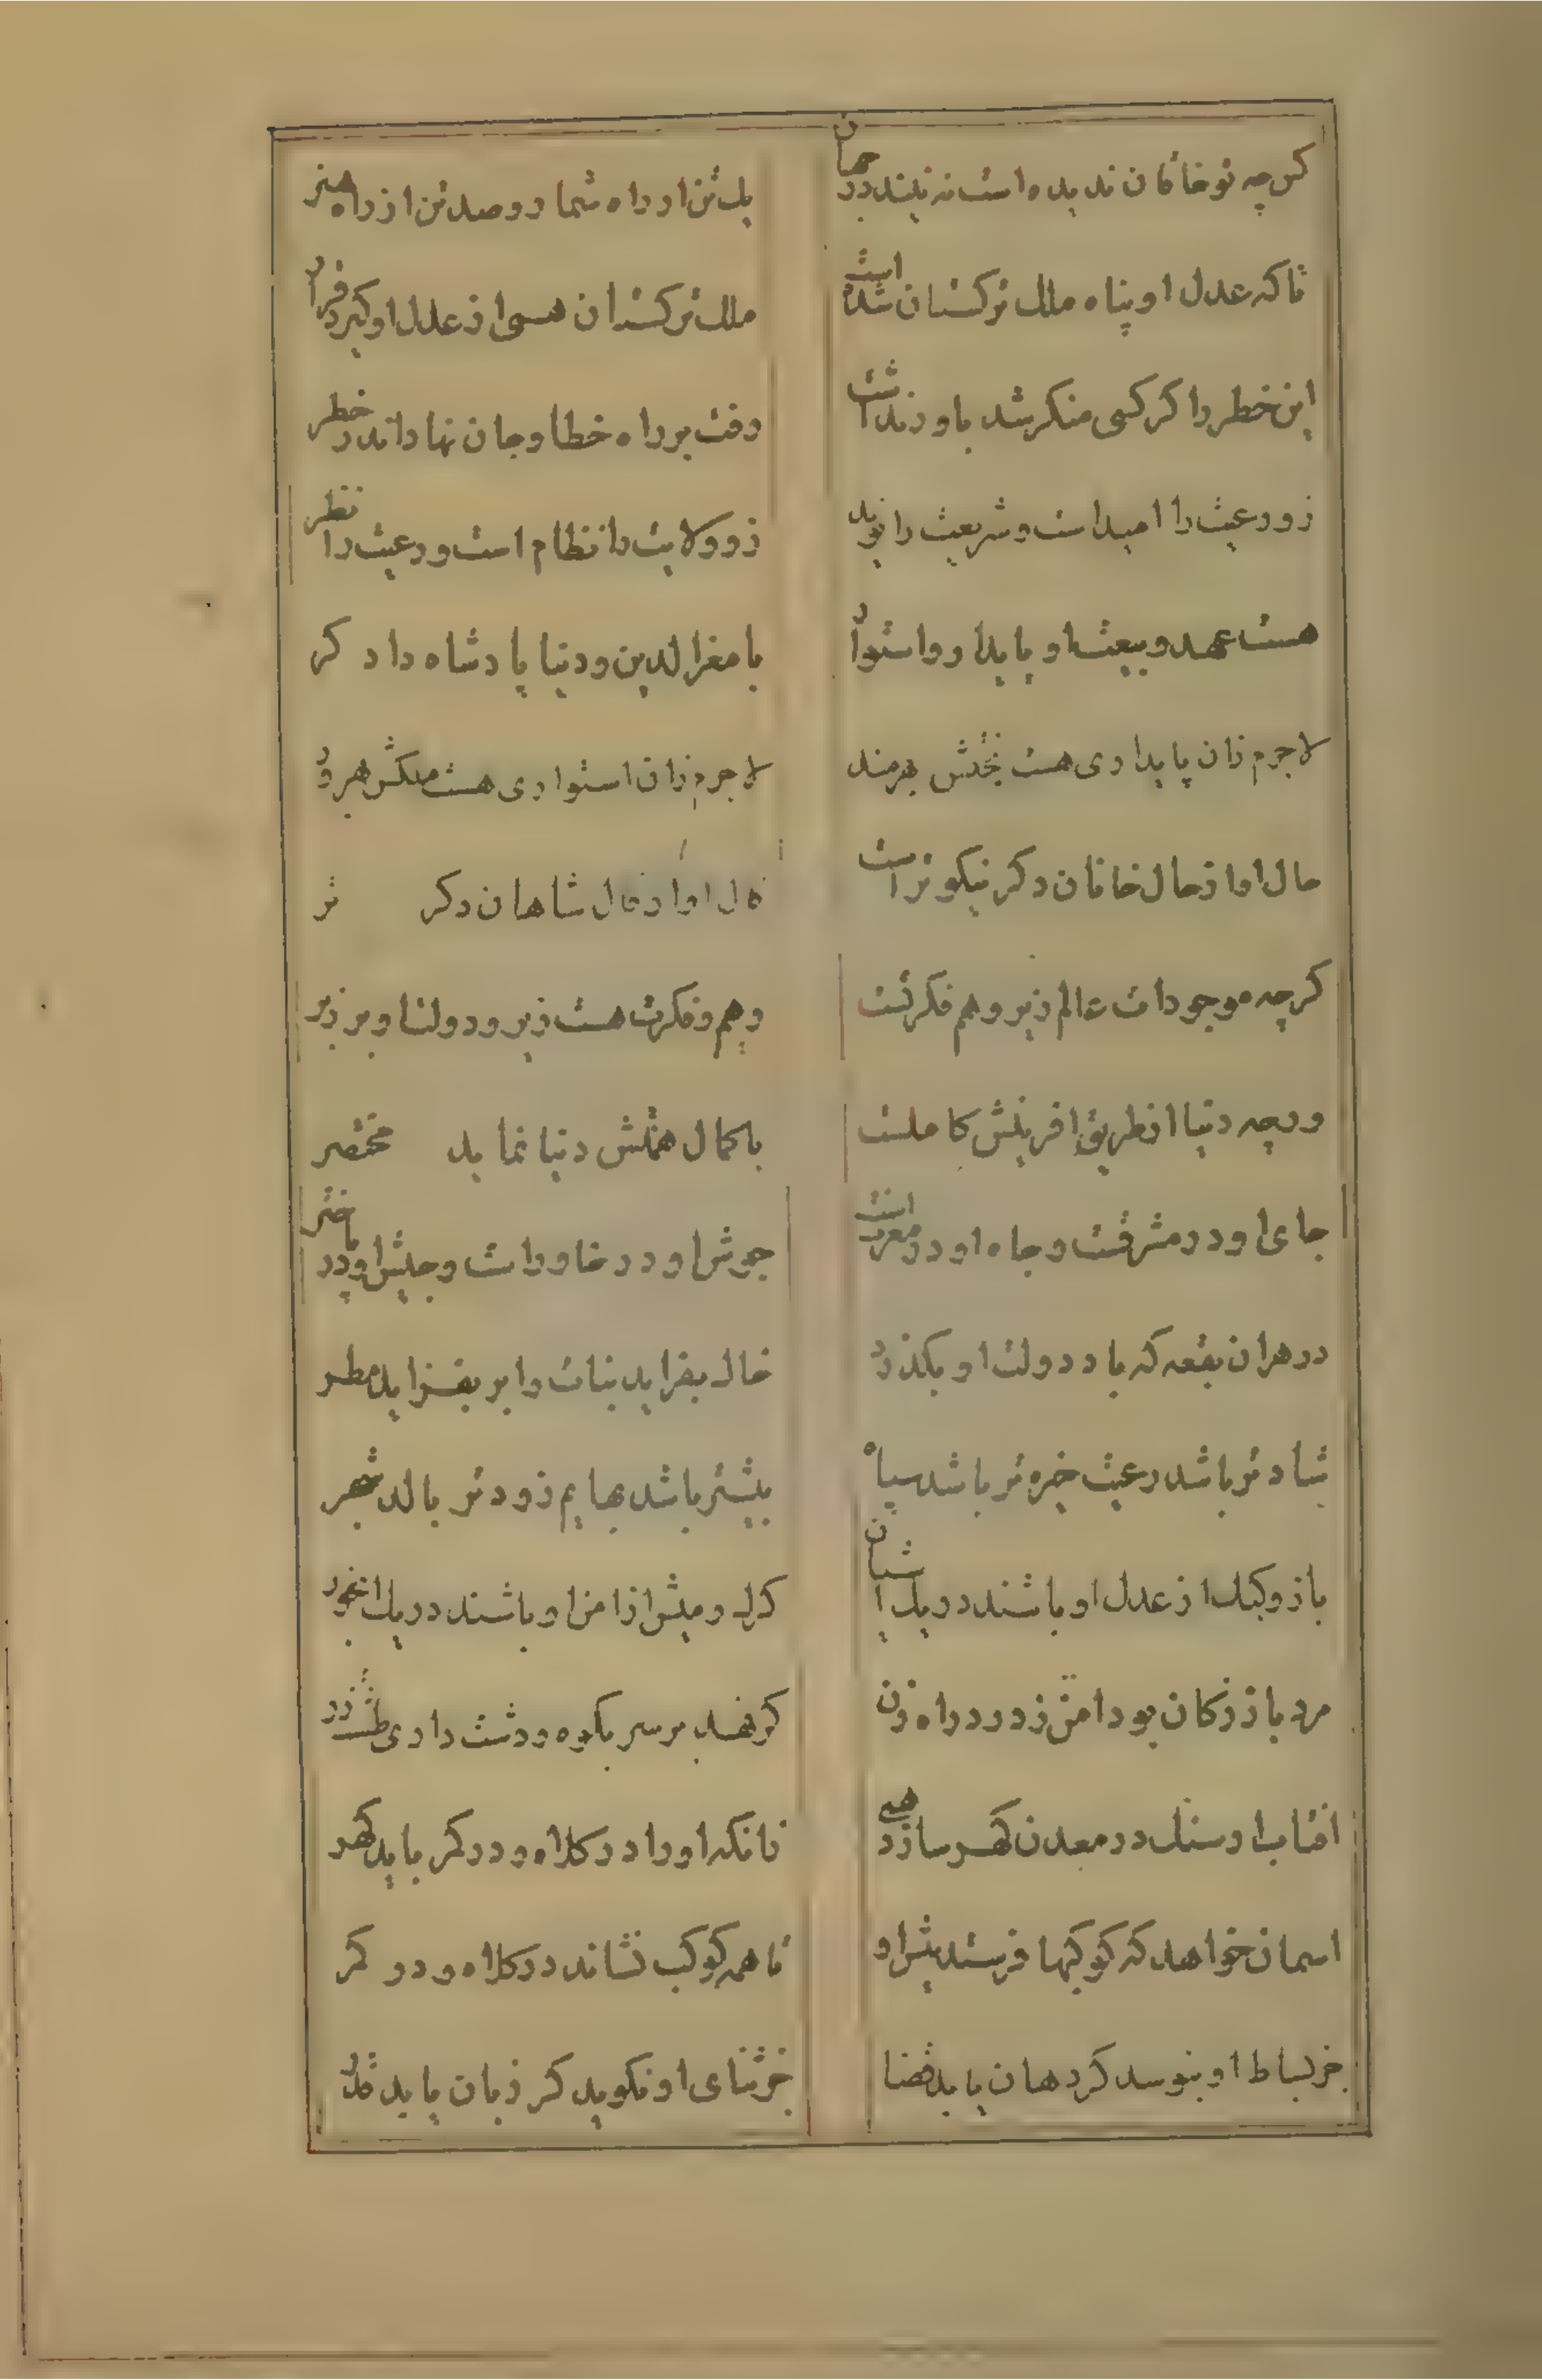 کس چه تو خاقان ندیده است نه بیند در جهان
یک تن از راه شما و صد تن از راه هنر
تا که عدل او پناه ملک ترکستان شده است
ملک ترکستان همی از عدل او گیرد قرار
این خطر را گر کسی منکر شد باور نداشت
رفت بر راه خطا و جان نهاد اندر خطر
زو رعیت را امید است و شریعت را نوید
زو ولایت را نظام است و رعیت را نظر
هست عهد و بیعت او پایدار و استوار
با مغزالدین و دنیا پادشاه دادگر
لاجرم زان پایداری هست بختش بهرمند
لاجرم زان استواری هست ملکش بهرور
حال او از حال خاقان دگر نیکوتر است
فال او از فال شاهان دگر تر
گرچه موجودات عالم زیر وهم فکرتست
وهم و فکرت هست زیر و دولت او بر زبر
ورچه دنیا از طریق افرینش کاملست
با کمال همتش دنیا نماید مختصر
جای او در مشرقست و جاه او در مغربست
جوش او در خاورانست و جیش او در باختر
در هر ان بقعه که باد دولت او بگذرد
خاک بفزاید نبات و ابر بفزاید مطر
شادتر باشد رعیت خیره تر باشد سپاه
بیشتر باشد بهایم زودتر بالد شجر
باز و کبک از عدل او باشند در یک اشیان
گرگ و میش از امن او باشند در یک ابخور
مرد بازرگان بود امن ز درد راه زن
گر نهد بر سر بکوه و دشت داری طشت زر
افتاب از سنگ در معدن گهر سازد همی
زانکه او را در کلاه و در کمر باید گهر
اسمان خواهد که کوکبها فرستد پیش او
تا همه کوکب نشاند در کلاه و در کمر
جز بساط او نبوسد گر دهان یابد قضا
جز ثنای او نگوید گر زبان یابد قدر